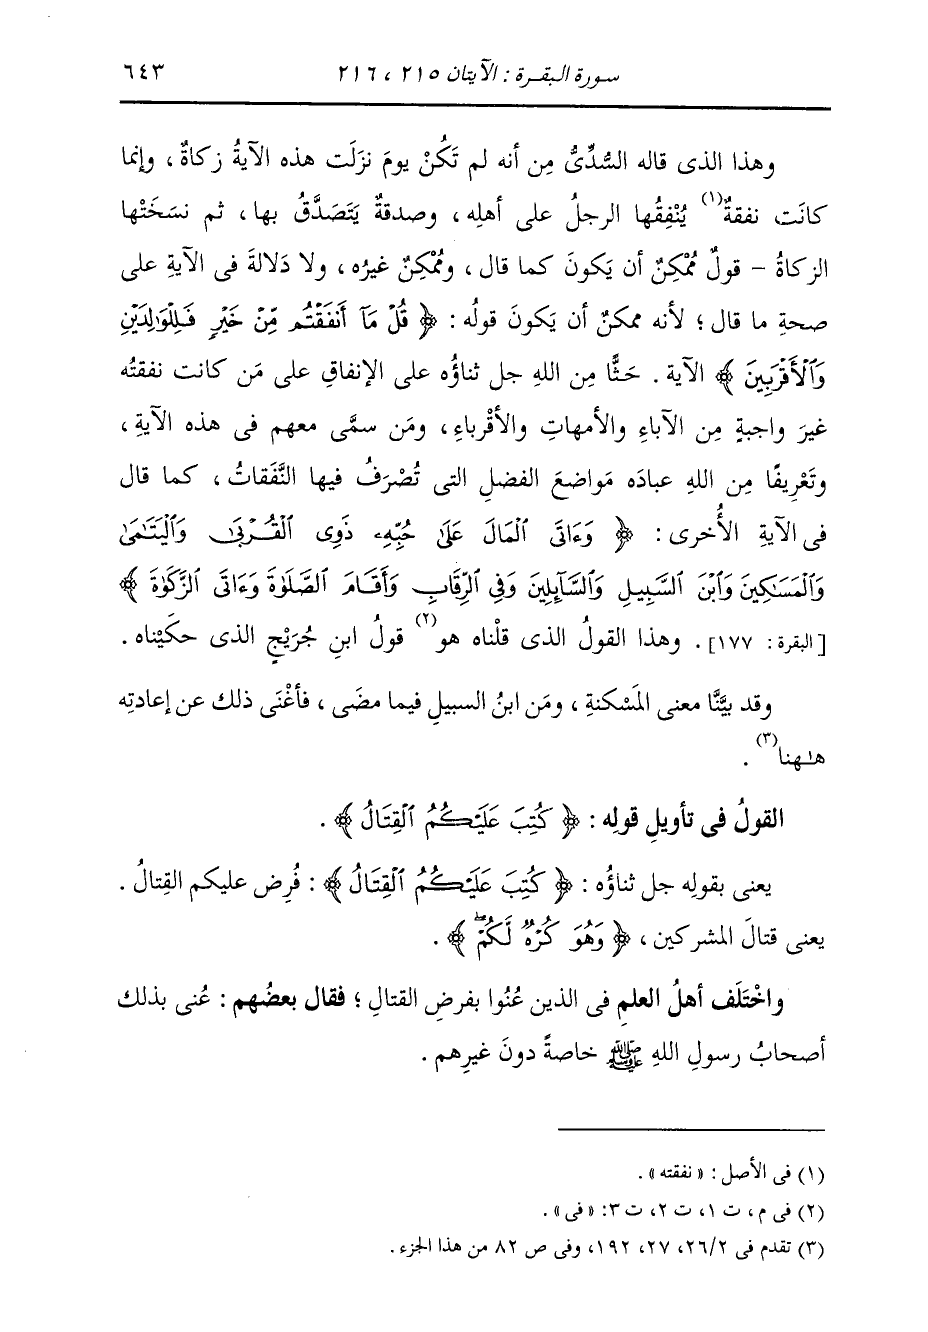 سورة البقرة : الآيتان ٢١٥ ، ٢١٦ ٦٤٣
وهذا الذى قاله السُّدِّىُّ مِن أنه لم تَكُنْ يومَ نزَلَت هذه الآيةُ زكاةٌ ، وإنما
كانَت نفقةٌ(١) يُنْفِقُها الرجلُ على أهلِه ، وصدقةٌ يَتَصَدَّقُ بها ، ثم نسَخَتْها
الزكاةُ - قولٌ مُمْكِنٌ أن يَكونَ كما قال ، ومُمْكِنٌ غيرُه ، ولا دَلالةَ فى الآيةِ على
صحةِ ما قال ؛ لأنه ممكنٌ أن يَكونَ قولُه : ﴿ قُلْ مَآ أَنفَقْتُم مِّنْ خَيْرٍ فَلِلْوَٰلِدَيْنِ
وَٱلْأَقْرَبِينَ ﴾ الآية . حَثًّا مِن اللهِ جل ثناؤُه على الإنفاقِ على مَن كانت نفقتُه
غيرَ واجبةٍ مِن الآباءِ والأمهاتِ والأقْرباءِ ، ومَن سمَّى معهم فى هذه الآيةِ ،
وتَعْرِيفًا مِن اللهِ عبادَه مَواضعَ الفضلِ التى تُصْرَفُ فيها النَّفَقاتُ ، كما قال
فى الآيةِ الأُخرى : ﴿ وَءَاتَى ٱلْمَالَ عَلَىٰ حُبِّهِۦ ذَوِى ٱلْقُرْبَىٰ وَٱلْيَتَٰمَىٰ
وَٱلْمَسَٰكِينَ وَٱبْنَ ٱلسَّبِيلِ وَٱلسَّآئِلِينَ وَفِى ٱلرِّقَابِ وَأَقَامَ ٱلصَّلَوٰةَ وَءَاتَى ٱلزَّكَوٰةَ ﴾
[البقرة : ١٧٧] . وهذا القولُ الذى قلْناه هو(٢) قولُ ابنِ جُرَيْجٍ الذى حكَيْناه .
وقد بيَّنَّا معنى المَسْكنةِ ، ومَن ابنُ السبيلِ فيما مضَى ، فأغْنَى ذلك عن إعادتِه
هٰهنا(٣) .
القولُ فى تأويلِ قولِه : ﴿ كُتِبَ عَلَيْكُمُ ٱلْقِتَالُ ﴾ .
يعنى بقولِه جل ثناؤُه : ﴿ كُتِبَ عَلَيْكُمُ ٱلْقِتَالُ ﴾ : فُرِض عليكم القِتالُ .
يعنى قتالَ المشركين ، ﴿ وَهُوَ كُرْهٌ لَّكُمْ ۖ ﴾ .
واخْتَلَف أهلُ العلمِ فى الذين عُنُوا بفرضِ القتالِ ؛ فقال بعضُهم : عُنى بذلك
أصحابُ رسولِ اللهِ ﷺ خاصةً دونَ غيرِهم .
(١) فى الأصل : « نفقته » .
(٢) فى م ، ت ١، ت ٢، ت ٣: « فى » .
(٣) تقدم فى ٢/ ٢٦، ٢٧، ١٩٢، وفى ص ٨٢ من هذا الجزء .